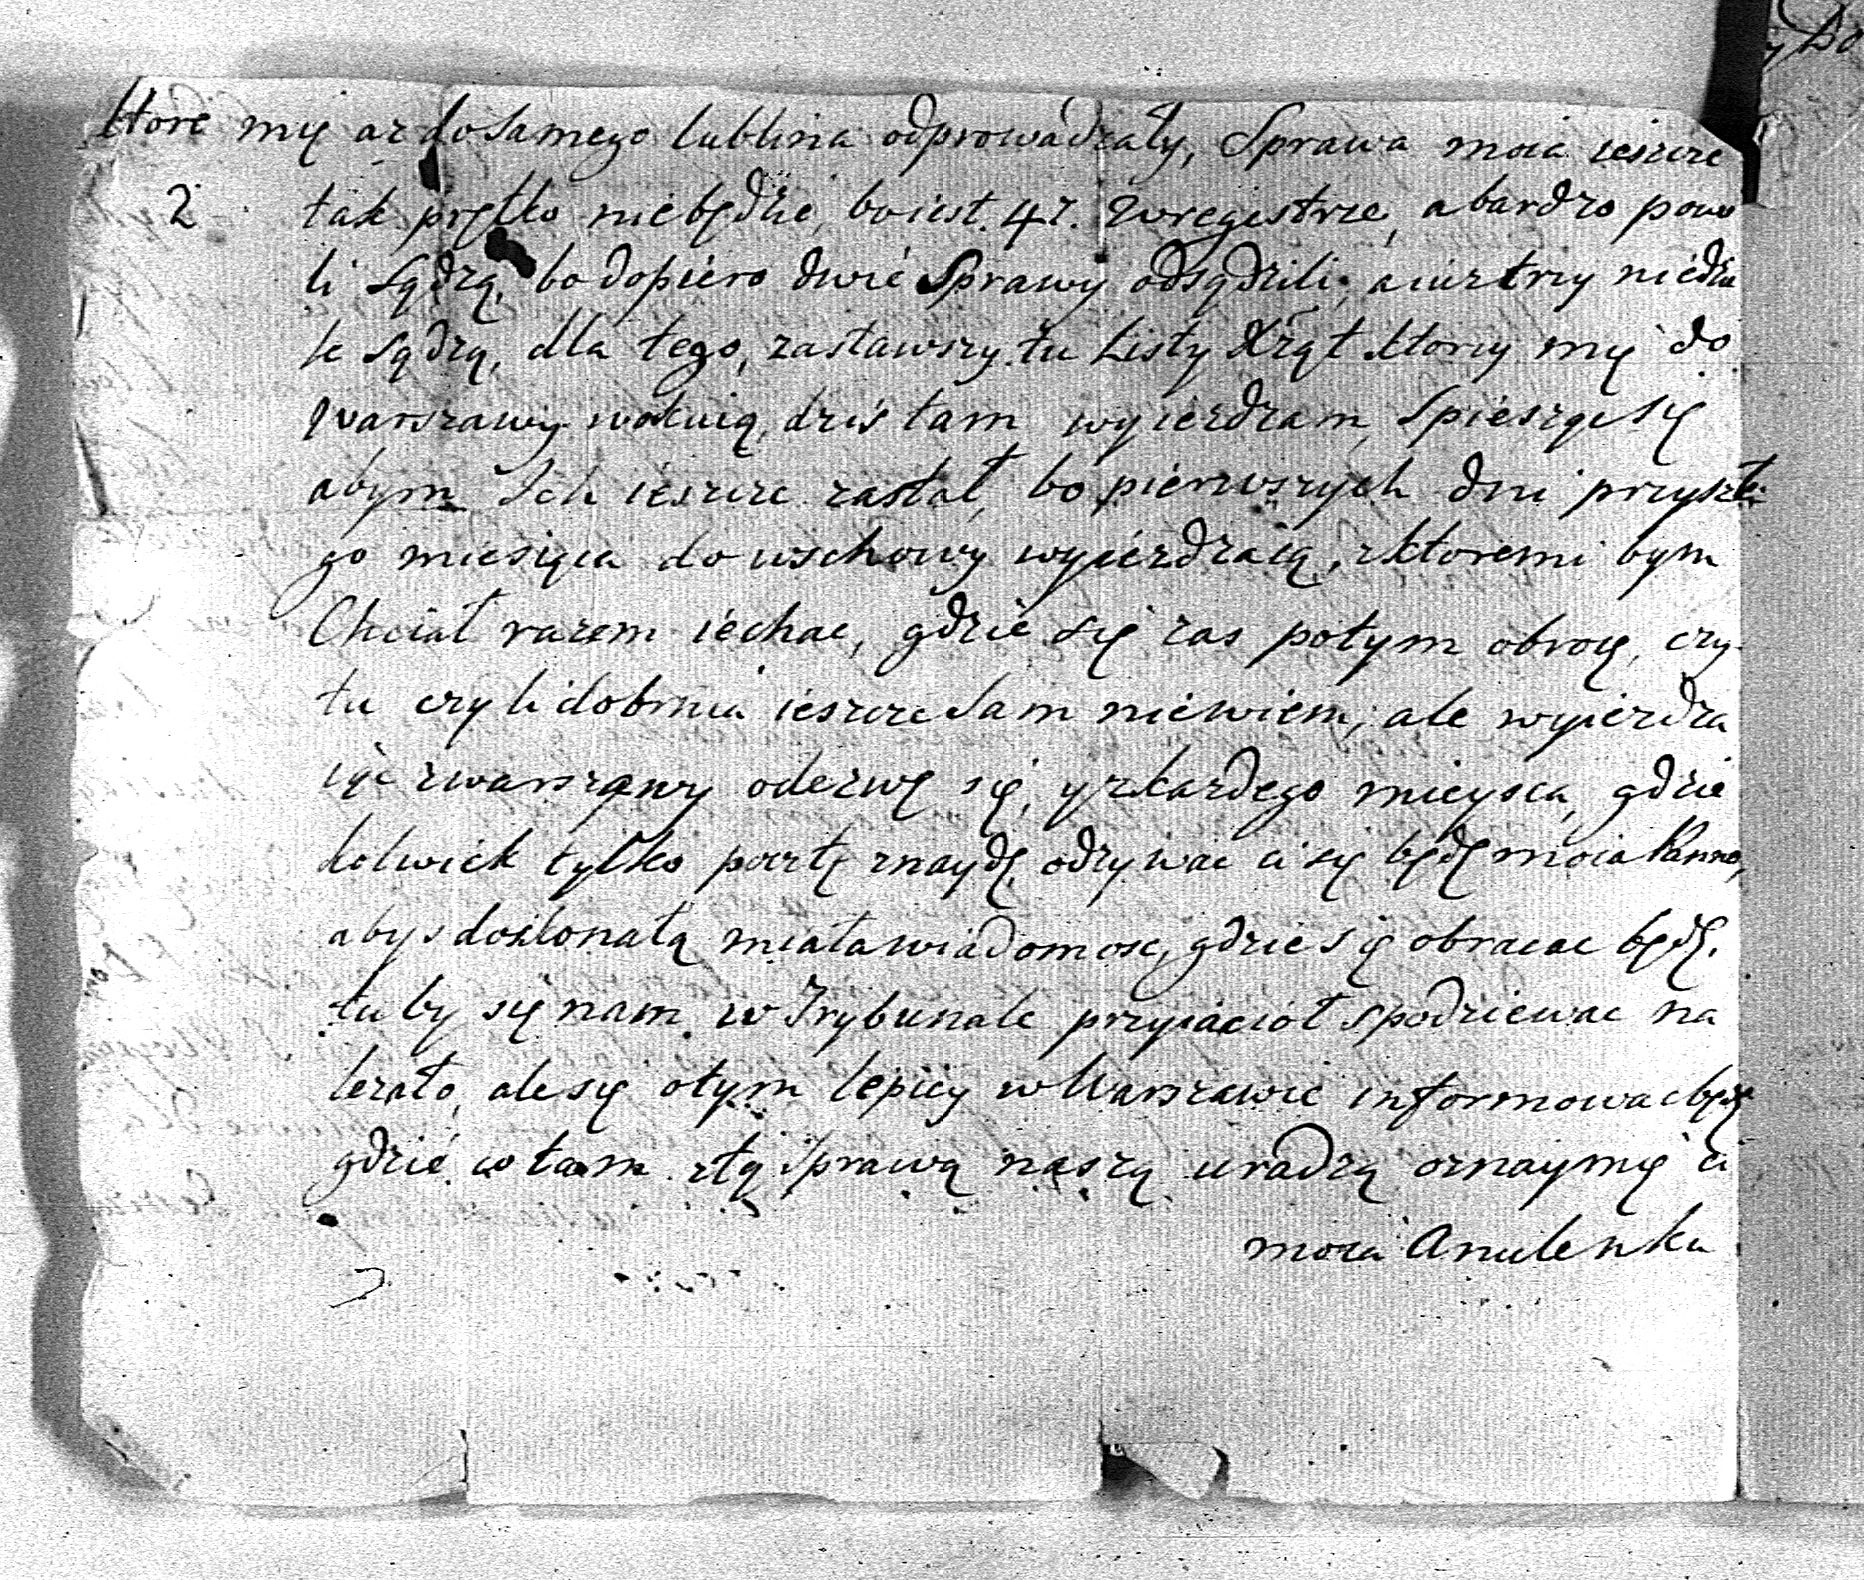 ktore mię az do samego lublina odprowadzały, Sprawa moia ieszcze
2 tak prętko niebędzie, bo iest. 47. w regestrze, a bardzo powo
li sądzą, bo dopiero dwie Sprawy odsądzili, a iuz trzy niedzie
le sądzą, dla tego, zastawszy tu Listy Xząt ktorzy mię do
warszawy wokuią, dzis tam wyiezdzam, Spieszący się
abym Ich ieszcze zastał, bo pierwszych dni przyszłe
go miesiąca do wschowy wyiezdzaią, z ktoremi bym
Chciał razem iechac, gdzie się zas potym obrocę, czy
tu czyli dobrnia ieszcze Sam niewiem, ale wyiezdza
iąc z warszawy odezwę się, y z kazdego mieysca, gdzie
kolwiek tylko pocztę znaydę odzywac ci się będę moia Panno,
abys doskonałą miała wiadomosc, gdzie się obracac będę.
tu by się nam w Trybunale przyiacioł spodziewac na
lezało, ale się o tym lepiey w Warszawie informowac będę
gdzie co tam z tą Sprawą naszą uradzą oznaymię ci
moia Anulenku